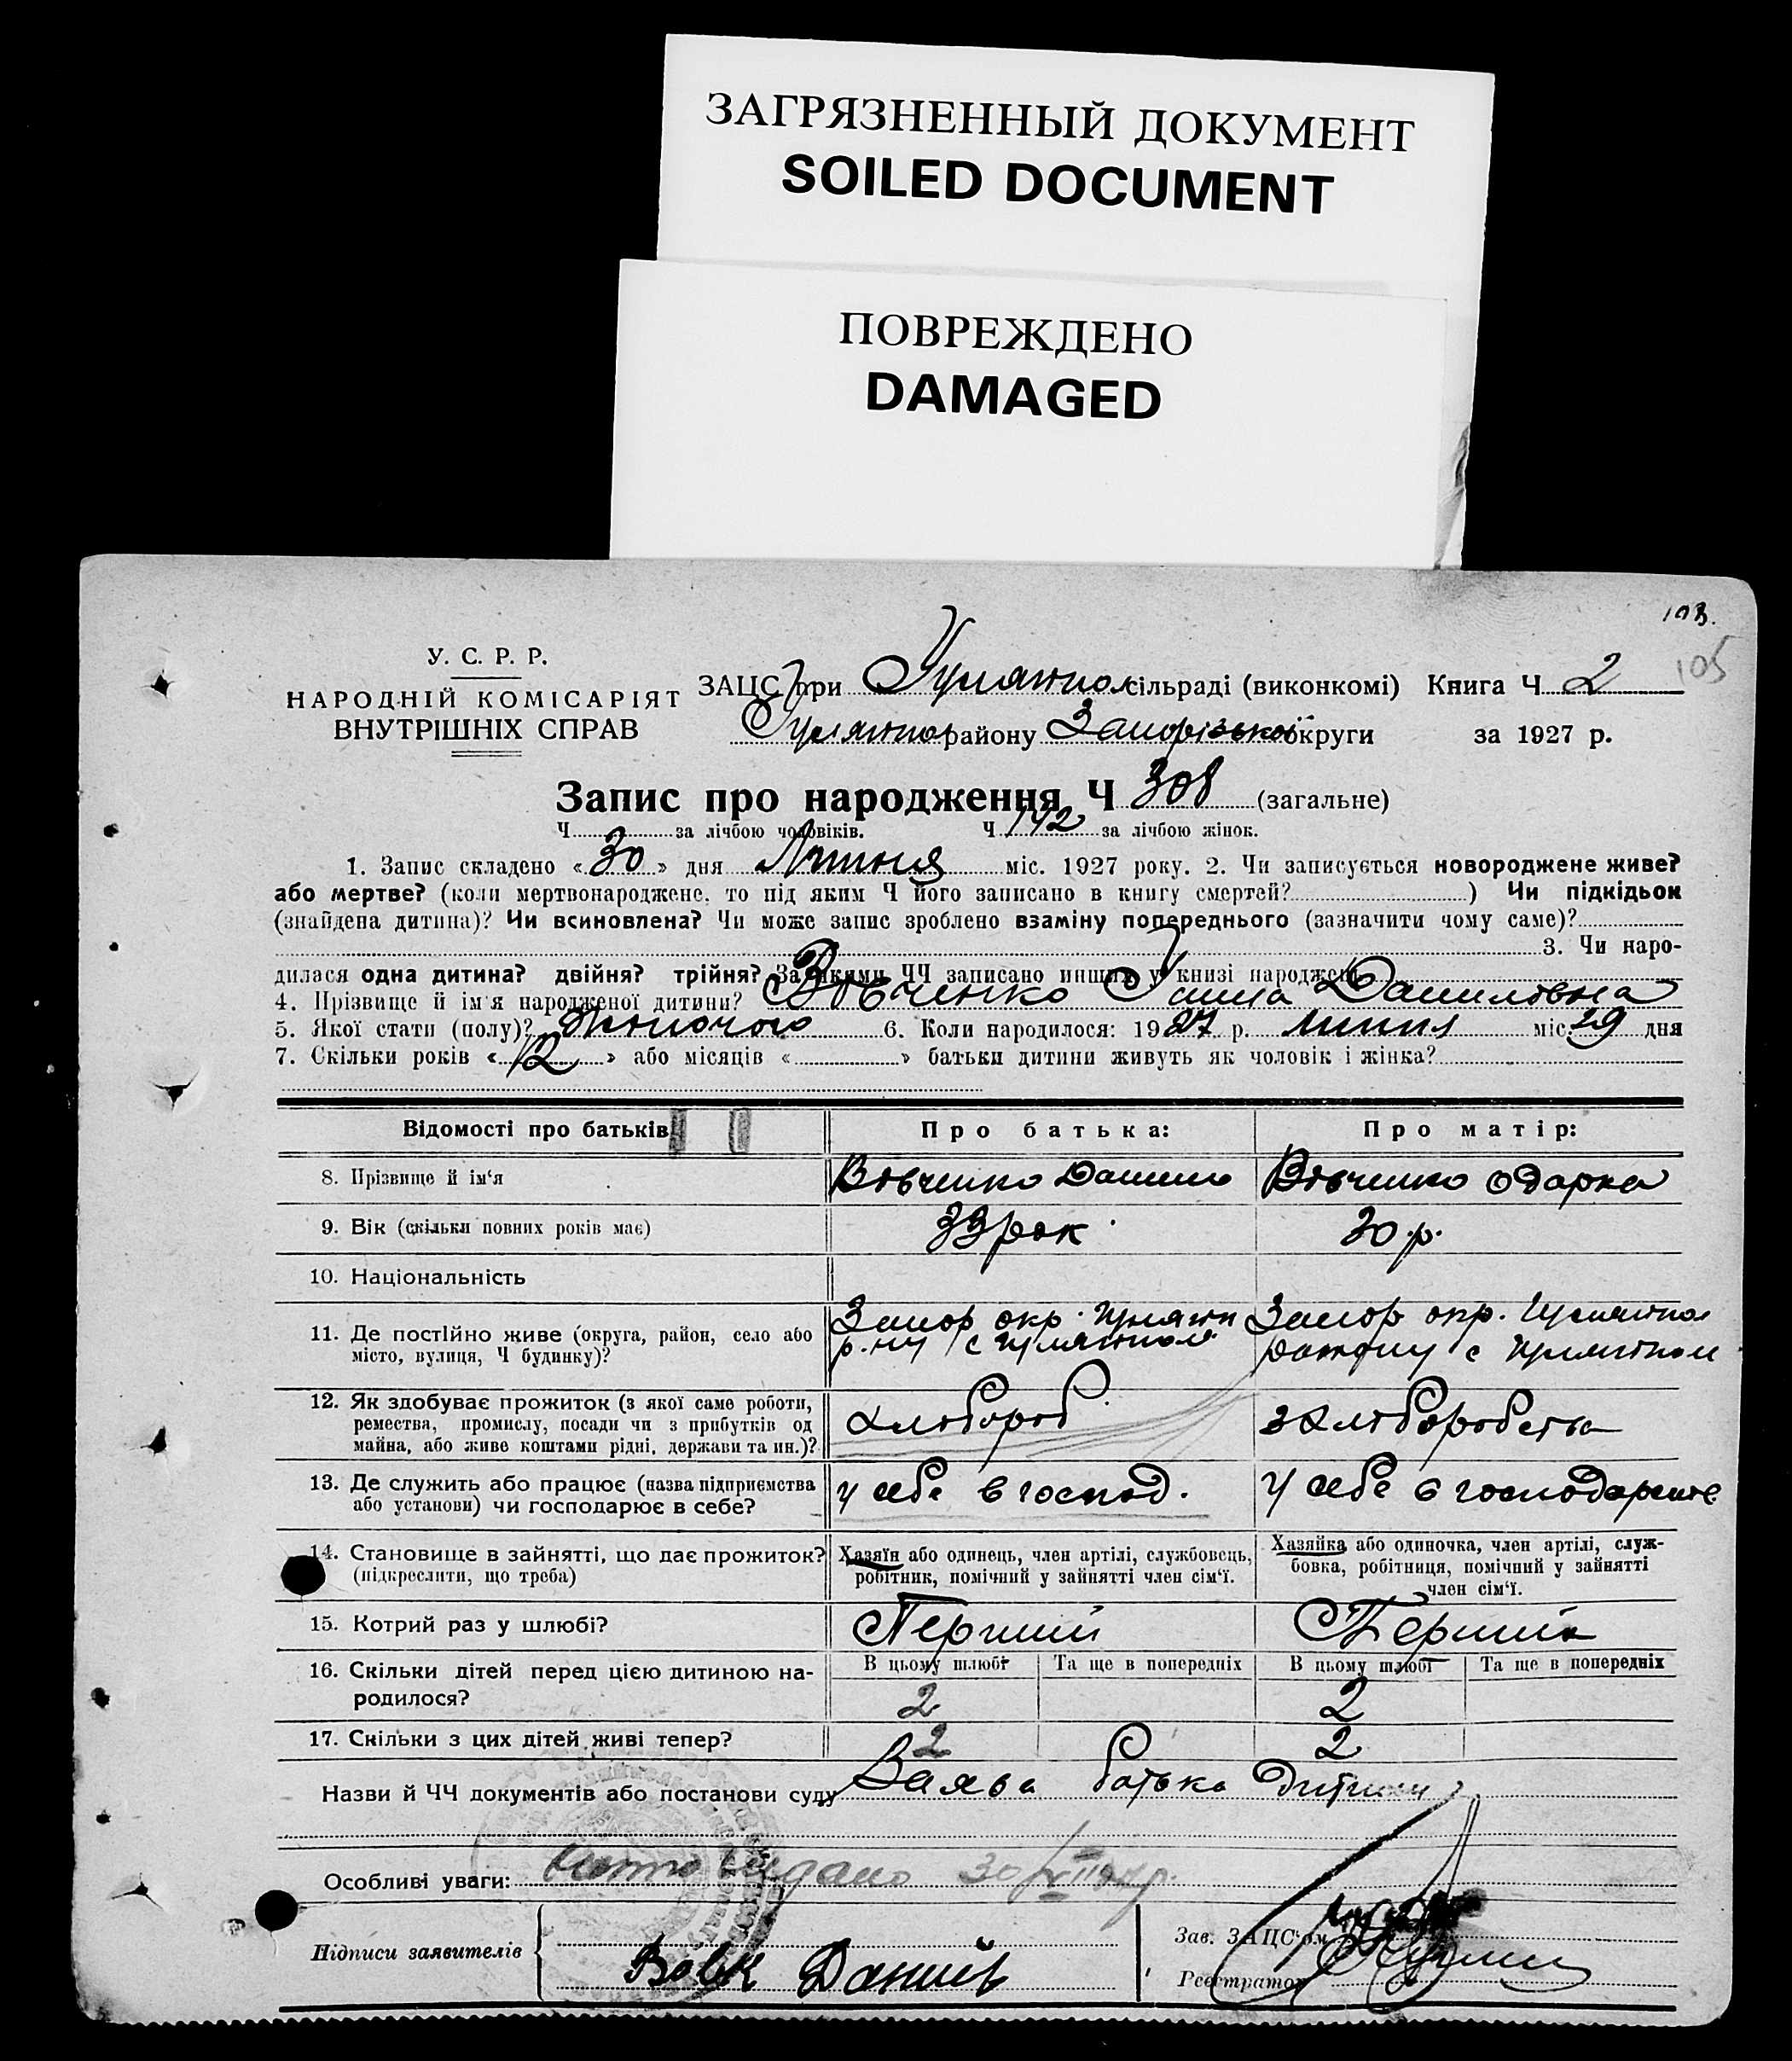 ЗАГРЯЗНЕННЫЙ ДОКУМЕНТ
SOILED DOCUMENT
ПОВРЕЖДЕНО
DAMAGED
103.
105
У. С. Р. Р.
НАРОДНІЙ КОМІСАРІЯТ
ВНУТРІШНІХ СПРАВ
ЗАЦС при Гуляйпол сільраді (виконкомі) Книга Ч 2
Гуляйпол району Запорізької округи за 1927 р.
Запис про народження Ч 308 (загальне)
Ч за лічбою чоловіків. Ч 142 за лічбою жінок.
1. Запис складено «30» дня Липня міс. 1927 року. 2. Чи записується новороджене живе?
або мертве? (коли мертвонароджене, то під яким Ч його записано в книгу смертей? ) Чи підкідьок
(знайдена дитина)? Чи всиновлена? Чи може запис зроблено взаміну попереднього (зазначити чому саме)?
3. Чи наро-
дилася одна дитина? двійня? трійня? За якими ЧЧ записано инших у книзі народжень
4. Прізвище й ім'я народженої дитини? Вовченко Ганна Даниловна
5. Якої стати (полу)? Жіночого 6. Коли народилося: 1927 р. липня міс. 29 дня
7. Скільки років «12» або місяців « » батьки дитини живуть як чоловік і жінка?
Відомості про батьків Про батька: Про матір:
8. Прізвище й ім'я Вовченко Данило Вовченко Одарка
9. Вік (скільки повних років має) 33 рок. 30 р.
10. Національність
11. Де постійно живе (округа, район, село або місто, вулиця, Ч будинку)? Запор окр. Гуляйп р-ну с Гуляйполя Запор окр. Гуляйпол району с Гуляйполе
12. Як здобуває прожиток (з якої саме роботи, ремества, промислу, посади чи з прибутків од майна, або живе коштами рідні, держави та ин.)? Хлібороб з Хліборобства
13. Де служить або працює (назва підприємства або установи) чи господарює в себе? у себе в господ. у себе в господарстві
14. Становище в зайнятті, що дає прожиток? (підкреслити, що треба) Хазяїн або одинець, член артілі, службовець, робітник, помічний у зайнятті член сім'ї. Хазяйка або одиночка, член артілі, служ-бовка, робітниця, помічний у зайнятті член сім'ї.
15. Котрий раз у шлюбі? Перший Перший
16. Скільки дітей перед цією дитиною на-родилося? В цьому шлюбі 2 Та ще в попередніх В цьому шлюбі 2 Та ще в попередніх
17. Скільки з цих дітей живі тепер? 2 2
Назви й ЧЧ документів або постанови суду Заява батька дитини
Особливі уваги: видано 30/VII 27 р.
Підписи заявителів Вовк Данило
Зав. ЗАЦС'ом
Реєстратор